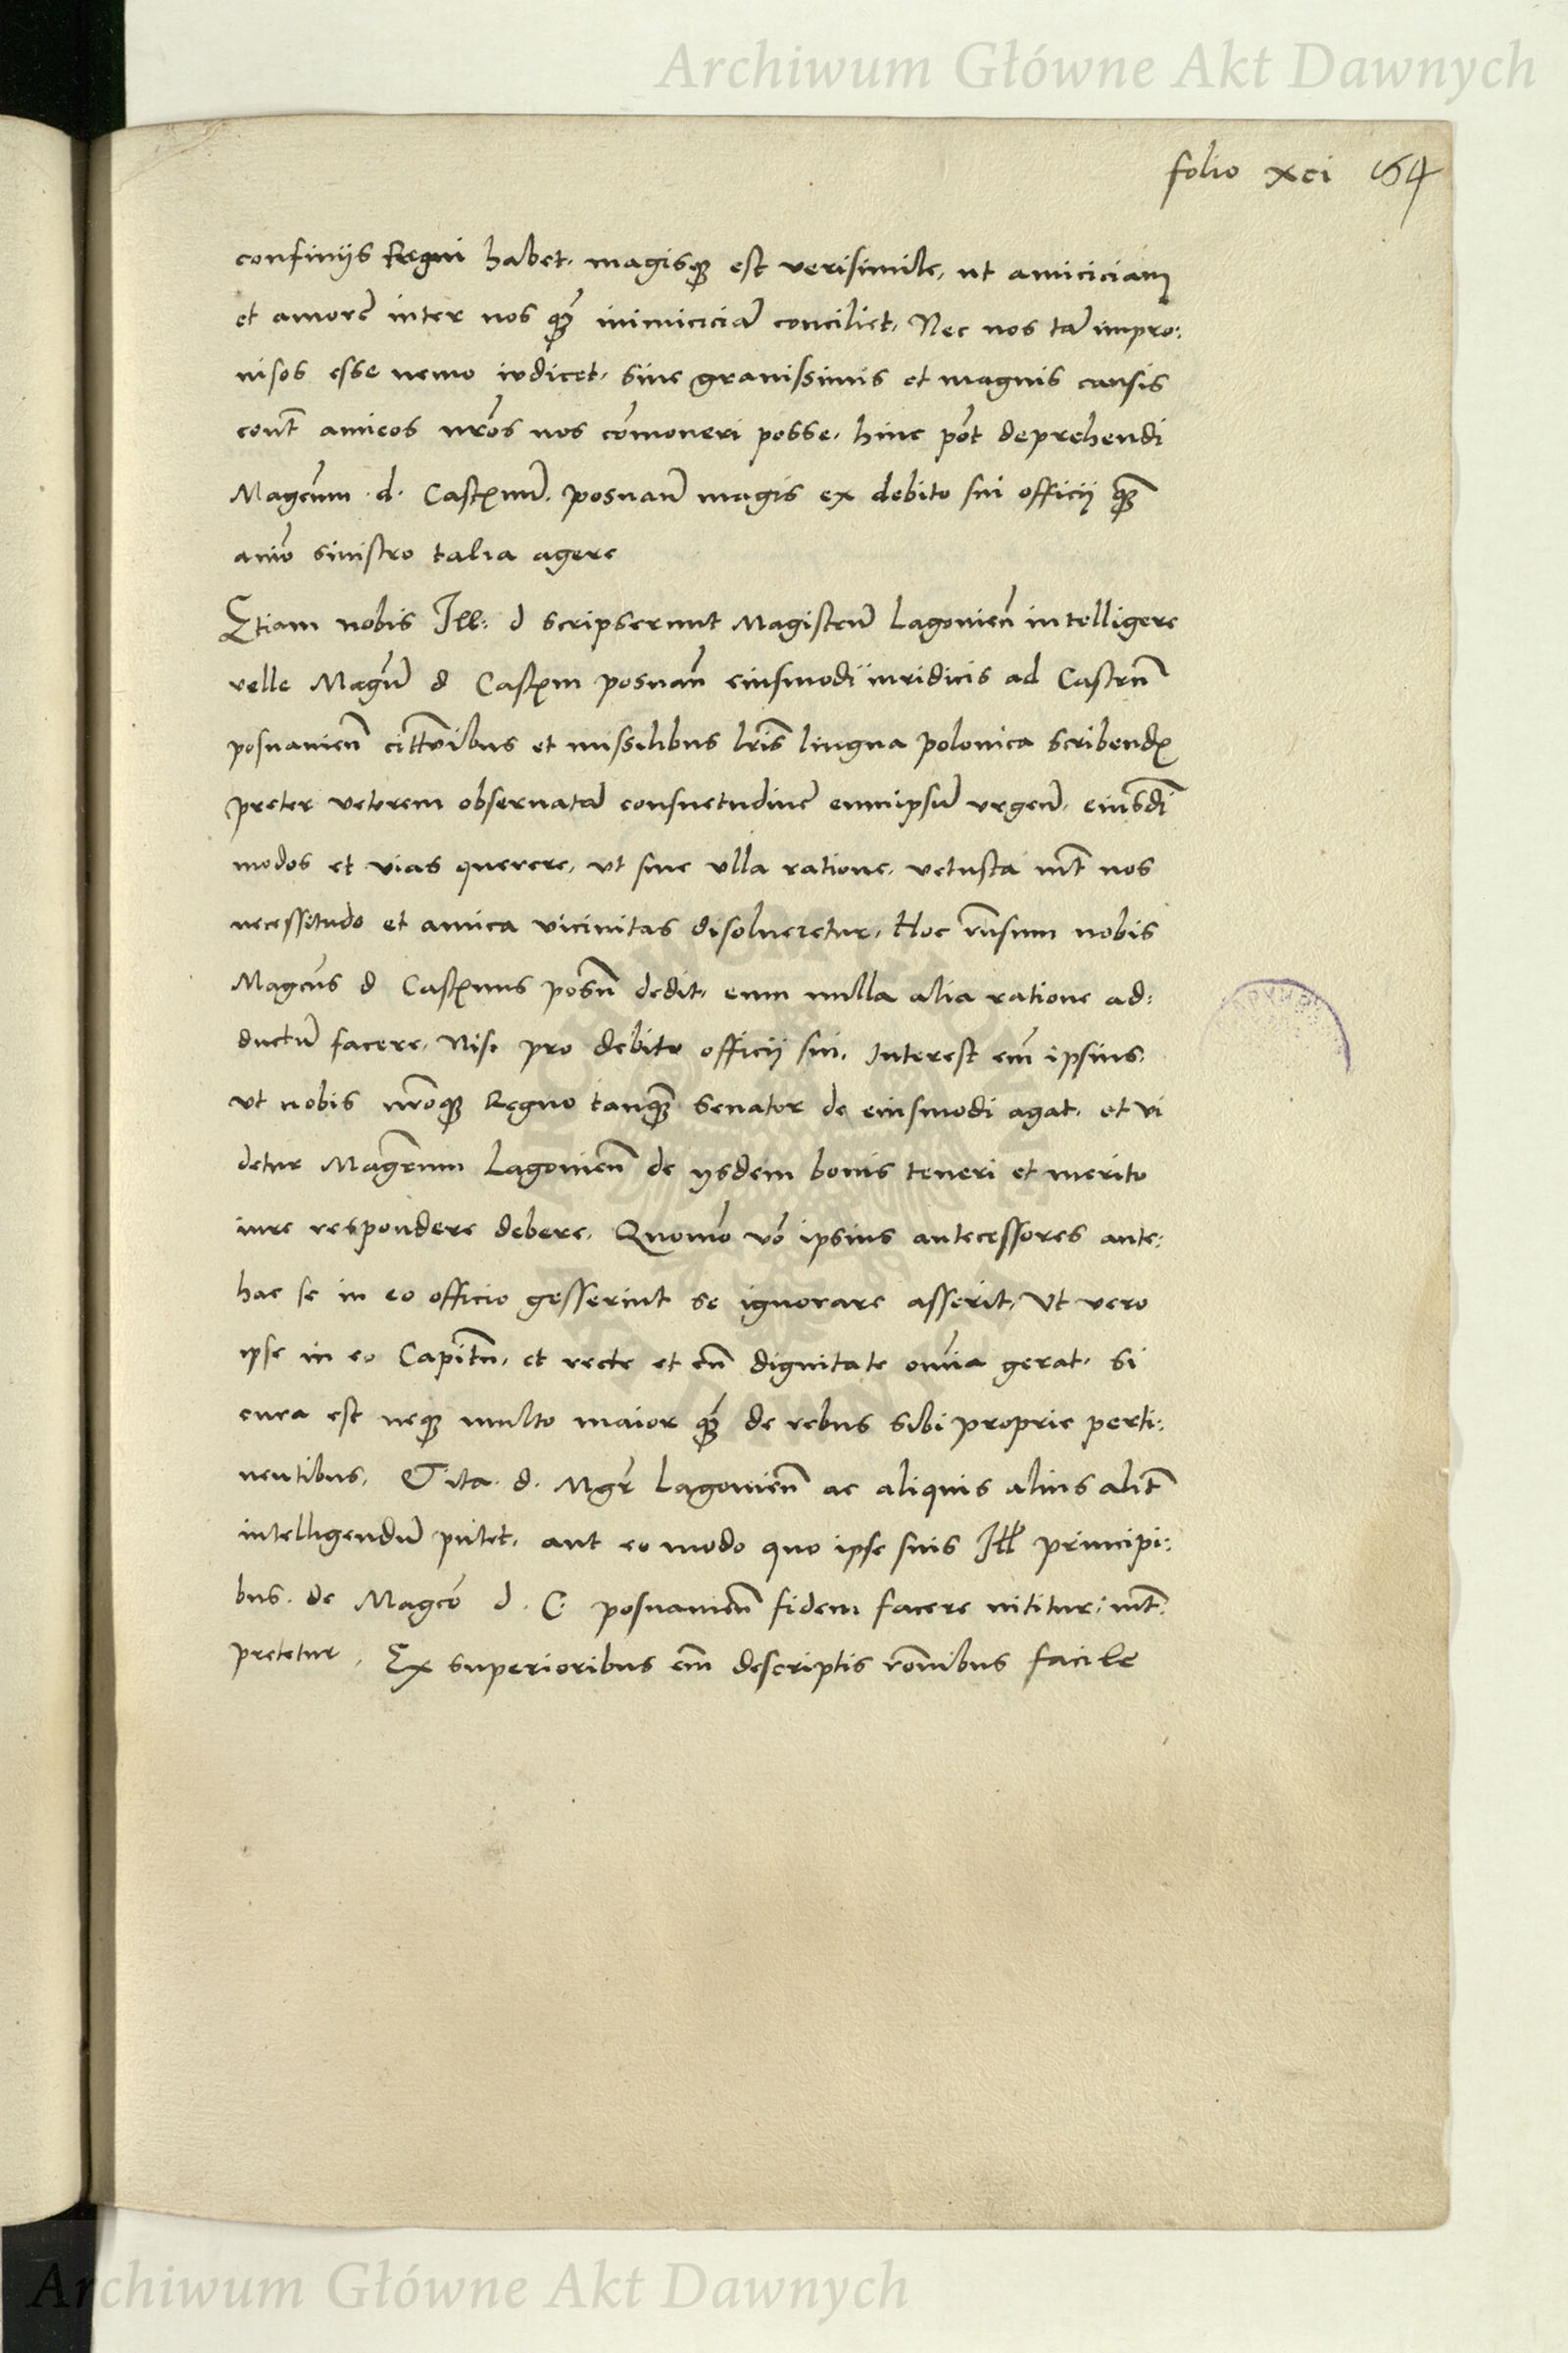 Archiwum Główne Akt Dawnych
folio xci 64
confinijs Regni habet. magisq3 est verisimile, ut amiciciam
et amorē inter nos q3̄ inimiciciā conciliet, Nec nos tā impro:
uisos esse nemo iudicet. sine grauissimis et magnis causis
cont̄ amicos nr̄os nos cōmoueri posse. hinc pōt deprehendi
Magcum .d. Castꝝnū. posnan̄ magis ex debito sui officij q3̄
aīo sinistro talia agere
Etiam nobis Ill: d scripserunt Magistrū Lagouien̄ intelligere
velle Magcū d Castꝝm posnan̄ eiusmodi iuridicis ad Castrū
posnanien̄ citt̄ribus et missilibus lr̄is lingua polonica scribendꝝ
preter veterem obseruatā consuetudinē eumipsū urgere, eiusdī
modos et vias querere, ut sine vlla ratione, vetusta int̄ nos
necessitudo et amica vicinitas disolueretur, Hoc rūsum nobis
Magcus d Castꝝnus posn̄ dedit, eum nulla alia ratione ad:
ductū facere, Nisi pro debito officij sui. Interest em̄ ipsius.
ut nobis nr̄oq3 Regno tanq3̄ senator de eiusmodi agat. et vi
detur Magr̄um Lagouien̄ de ijsdem bonis teneri et merito
iure respondere debere. Quomō vō ipsius antecessores ante:
hac se in eo officio gesserint se ignorare asserit, Ut vero
ipse in eo Capitn̄. et recte et cū dignitate om̄ia gerat. si
cura est neq3 multo maior q3̄ de rebus sibi proprie perti:
nentibus. ita .d. Mgr̄ Lagouien̄ ac aliquis alius alit̄
intelligendū putet. aut eo modo quo ipse suis Ill principi:
bus. de Magcō d. C. posnanien̄ fidem facere nititur: int̄:
pretetur. Ex superioribus em̄ descriptis rōnibus facile
Archiwum Główne Akt Dawnych